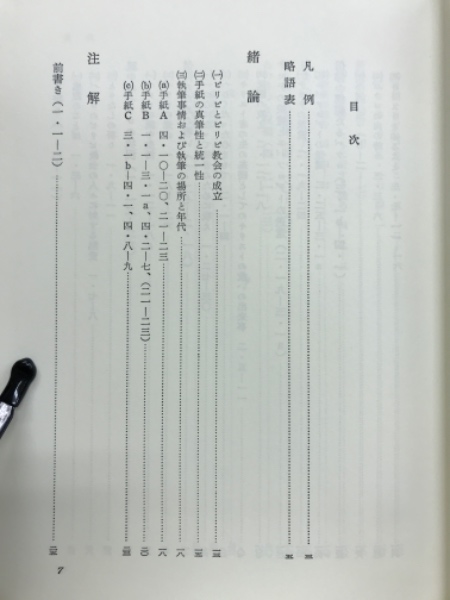 目次
凡例
略語表
緒論
㈠ピリピとピリピ教会の成立
㈡手紙の真筆性と統一性
㈢執筆事情および執筆の場所と年代 一八
(a)手紙A 四・一〇―二〇、二一―二三 一八
(b)手紙B 一・一―三・一a、四・二―七、(二一―二三)
(c)手紙C 三・一b―四・一、四・八―九
注解
前書き(一・一―二)
7